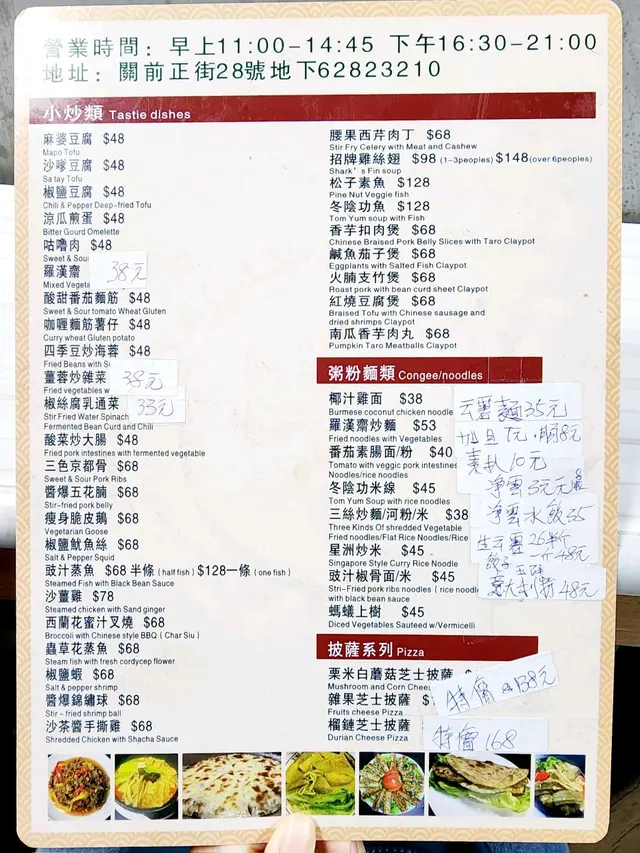 營業時間：早上11:00-14:45 下午16:30-21:00
地址：關前正街28號地下62823210
小炒類 Tastie dishes
麻婆豆腐 $48
Mapo Tofu
沙嗲豆腐 $48
Sa tay Tofu
椒鹽豆腐 $48
Chili & Pepper Deep-fried Tofu
涼瓜煎蛋 $48
Bitter Gourd Omelette
咕嚕肉 $48
Sweet & Sou
羅漢齋 38元
Mixed Vegeta
酸甜番茄麵筋 $48
Sweet & Sour tomato Wheat Gluten
咖喱麵筋薯仔 $48
Curry wheat Gluten potato
四季豆炒海蓉 $48
Fried Beans with S
薑蓉炒雜菜 38元
Fried vegetables w
椒絲腐乳通菜 33元
Stir Fried Water Spinach
Fermented Bean Curd and Chili
酸菜炒大腸 $48
Fried pork intestines with fermented vegetable
三色京都骨 $68
Sweet & Sour Pork Ribs
醬爆五花腩 $68
Stir-fried pork belly
瘦身脆皮鵝 $68
Vegetarian Goose
椒鹽魷魚絲 $68
Salt & Pepper Squid
豉汁蒸魚 $68 半條 ( half fish ) $128一條 ( one fish )
Steamed Fish with Black Bean Sauce
沙薑雞 $78
Steamed chicken with Sand ginger
西蘭花蜜汁叉燒 $68
Broccoli with Chinese style BBQ ( Char Siu )
蟲草花蒸魚 $68
Steam fish with fresh cordycep flower
椒鹽蝦 $68
Salt & pepper shrimp
醬爆錦繡球 $68
Stir-fried shrimp ball
沙茶醬手撕雞 $68
Shredded Chicken with Shacha Sauce
腰果西芹肉丁 $68
Stir Fry Celery with Meat and Cashew
招牌雞絲翅 $98 (1-3peoples) $148(over 6peoples)
Shark's Fin soup
松子素魚 $128
Pine Nut Veggie fish
冬陰功魚 $128
Tom Yum soup with Fish
香芋扣肉煲 $68
Chinese Braised Pork Belly Slices with Taro Claypot
鹹魚茄子煲 $68
Eggplants with Salted Fish Claypot
火腩支竹煲 $68
Roast pork with bean curd sheet Claypot
紅燒豆腐煲 $68
Braised Tofu with Chinese sausage and
dried shrimps Claypot
南瓜香芋肉丸 $68
Pumpkin Taro Meatballs Claypot
粥粉麵類 Congee/noodles
椰汁雞面 $38
Burmese coconut chicken noodle
羅漢齋炒麵 $53
Fried noodles with Vegetables
番茄素腸面/粉 $40
Tomato with veggie pork intestines
Noodles/rice noodles
冬陰功米線 $45
Tom Yum Soup with rice noodles
三絲炒麵/河粉/米 $38
Three Kinds Of shredded Vegetable
Fried noodles/Flat Rice Noodles/Rice
星洲炒米 $45
Singapore Style Curry Rice Noodle
豉汁椒骨面/米 $45
Stri-Fried pork ribs noodles ( rice noodle
with black bean sauce
螞蟻上樹 $45
Diced Vegetables Sauteed w/Vermicelli
云吞麵35元
加旦7元
8元
素扒10元
淨雲30元
淨雲水餃35
48元
意大利粉48元
披薩系列 Pizza
栗米白蘑菇芝士披薩
Mushroom and Corn Chee
雜果芝士披薩 $
Fruits cheese Pizza
特價 138元
榴槤芝士披薩
Durian Cheese Pizza
特價 168